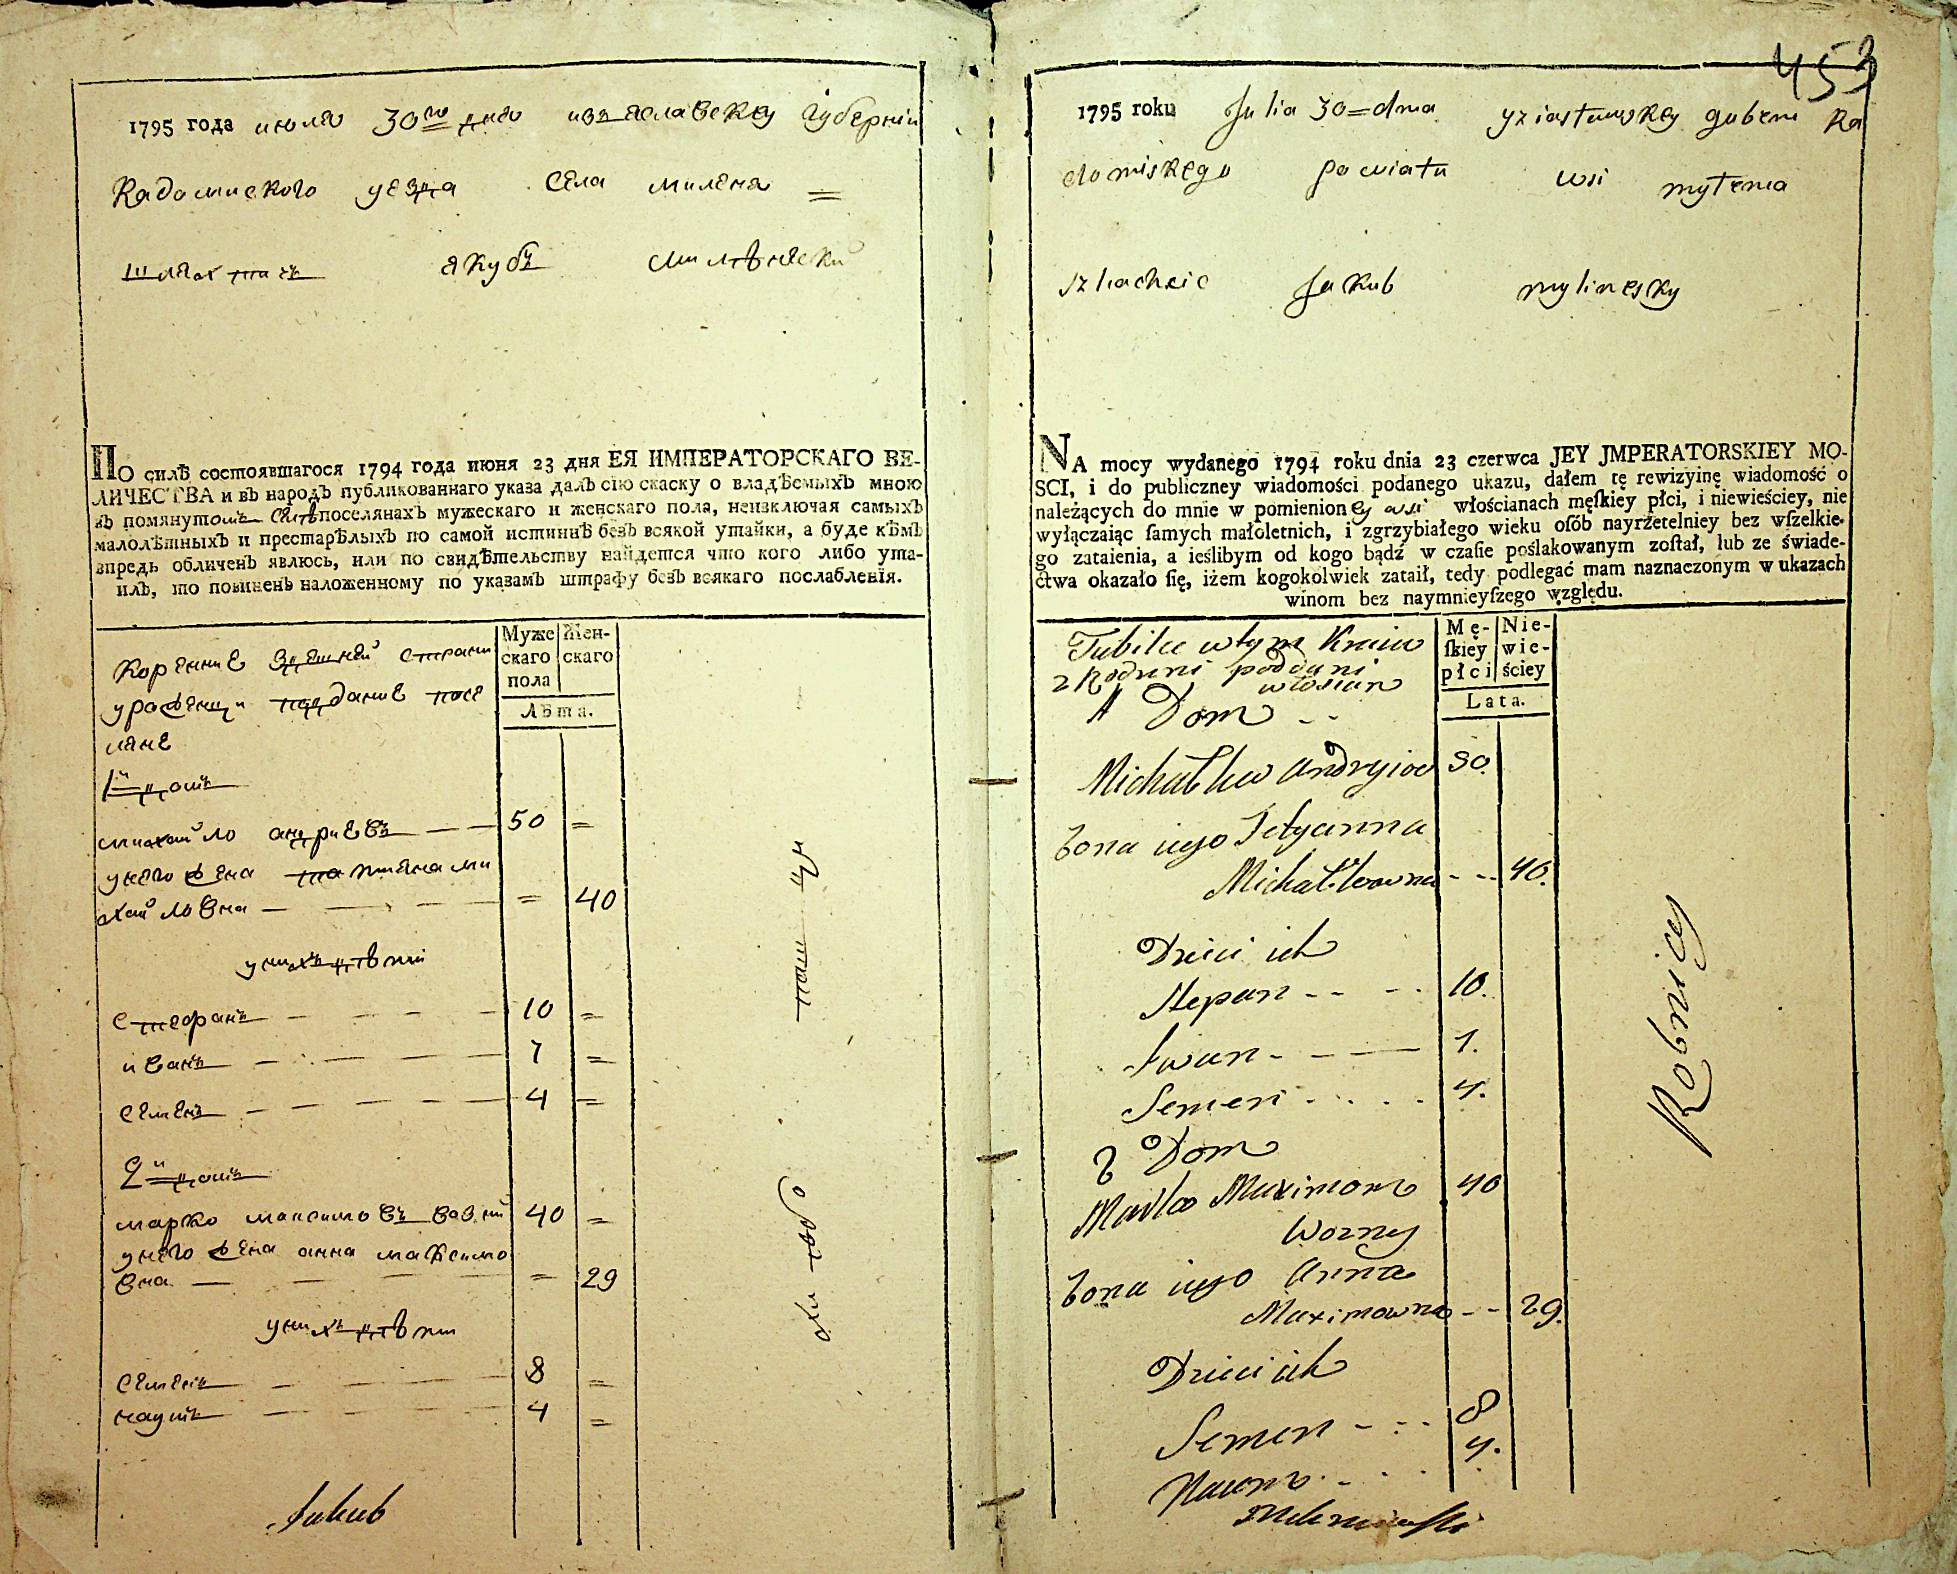 1795 года июля 30го дня изъяславскеу губернiи
Радомиского уезда села миленя =
шляхтичъ якубъ милѣнъски
ПО силѣ состоявшагося 1794 года июня 23 дня ЕЯ ИМПЕРАТОРСКАГО ВЕ-
ЛИЧЕСТВА и въ народъ публикованнаго указа далъ сїю скаску о владѣемыхъ мною
въ помянутомъ селѣ поселянахъ мужескаго и женскаго пола, неизключая самыхъ
малолѣтныхъ и престарѣлыхъ по самой истиннѣ безъ всякой утайки, а буде кѣмъ
впредь обличенъ явлюсь, или по свидѣтельству найдется что кого либо ута-
илъ, то повиненъ наложенному по указамъ штрафу безъ всякаго послабленїя.
Муже Жен-
скаго скаго
пола
Лѣта.
Коренние здешней страни
уроженци поддание посе
ляне
1й домъ
михайло андриевъ — — 50 =
у него жена татиена ми
хайловна — — — — = 40
у нихъ дѣти
стефанъ — — — — 10 =
иванъ — — — — 7 =
семенъ — — — — 4 =
2й домъ
марко максимовъ возний 40 =
у него жена анна максимо
вна — — — — = 29
у нихъ дѣти
семенъ — — — 8 =
наумъ — — — 4 =
Jakub
453
1795 roku Julia 30=dnia yziasławskey guberni Ra
domiskego powiatu wsi mytenia
szlachcic Jakub mylinesky
NA mocy wydanego 1794 roku dnia 23 czerwca JEY JMPERATORSKIEY MO-
SCI, i do publiczney wiadomości podanego ukazu, dałem tę rewizyinę wiadomość o
należących do mnie w pomienioney wsi włościanach męſkiey płci, i niewieściey, nie
wyłączaiąc ſamych małoletnich, i zgrzybiałego wieku oſób nayrzetelniey bez wſzelkie-
go zataienia, a ieślibym od kogo bądź w czaſie poślakowanym zoſtał, lub ze świade-
ctwa okazało ſię, iżem kogokolwiek zataił, tedy podlegać mam naznaczonym w ukazach
winom bez naymnieyſzego względu.
Mę- Nie-
ſkiey wie-
płci ściey
Lata.
Tubilce w tym Kraiu
z Rodzni poddani
włościan
1 Dom - -
Michałko Andryiow 50.
Zona iego Tetyanna
Michałkowna - - - 40.
Dzieci ich
Stepan - - - - 10.
Iwan - - - — 7.
Semen - - - - 4.
2 Dom
Marko Maximow 40
Wozny
Zona iego Anna
Maximowna - - 29.
Dzieci ich
Semen - - - 8
Naum - - - 4.
Robnicy